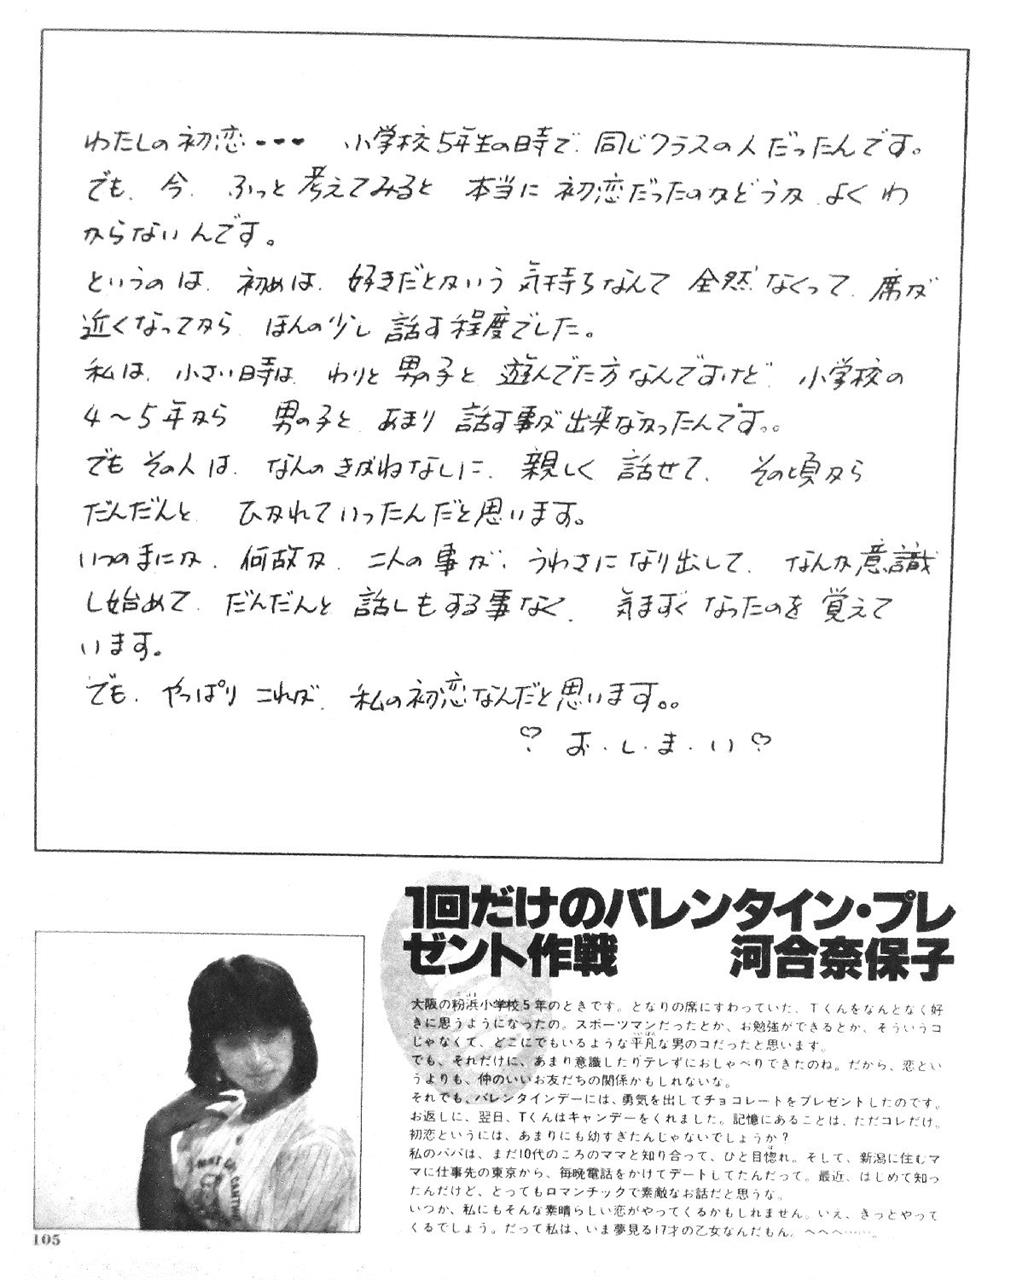 わたしの初恋・・・ 小学校5年生の時で、同じクラスの人だったんです。
でも、今、ふっと考えてみると 本当に初恋だったのかどうか、よくわ
からないんです。
というのは、初めは、好きだとかいう気持ちなんて全然なくって、席が
近くなってから、ほんの少し話す程度でした。
私は、小さい時は、わりと男の子と遊んでた方なんですけど、小学校の
4〜5年から 男の子と、あまり話す事が出来なかったんです。。
でもその人は、なんのきがねなしに、親しく話せて、その頃から
だんだんと、ひかれていったんだと思います。
いつのまにか、何故か、二人の事が、うわさになり出して、なんか意識
し始めて、だんだんと話しもする事なく、気まずくなったのを覚えて
います。
でも、やっぱりこれが、私の初恋なんだと思います。。
♡お・し・ま・い♡
1回だけのバレンタイン・プレ
ゼント作戦 河合奈保子
大阪の粉浜小学校5年のときです。となりの席にすわっていた、Tくんをなんとなく好
きに思うようになったの。スポーツマンだったとか、お勉強ができるとか、そういうコ
じゃなくて、どこにでもいるような平凡な男のコだったと思います。
でも、それだけに、あまり意識したりテレずにおしゃべりできたのね。だから、恋とい
うよりも、仲のいいお友だちの関係かもしれないな。
それでも、バレンタインデーには、勇気を出してチョコレートをプレゼントしたのです。
お返しに、翌日、Tくんはキャンデーをくれました。記憶にあることは、ただコレだけ。
初恋というには、あまりにも幼すぎたんじゃないでしょうか？
私のパパは、まだ10代のころのママと知り合って、ひと目惚れ。そして、新潟に住むマ
マに仕事先の東京から、毎晩電話をかけてデートしてたんだって。最近、はじめて知っ
たんだけど、とってもロマンチックで素敵なお話だと思うな。
いつか、私にもそんな素晴らしい恋がやってくるかもしれません。いえ、きっとやって
くるでしょう。だって私は、いま夢見る17才の乙女なんだもん。へへへ……。
105